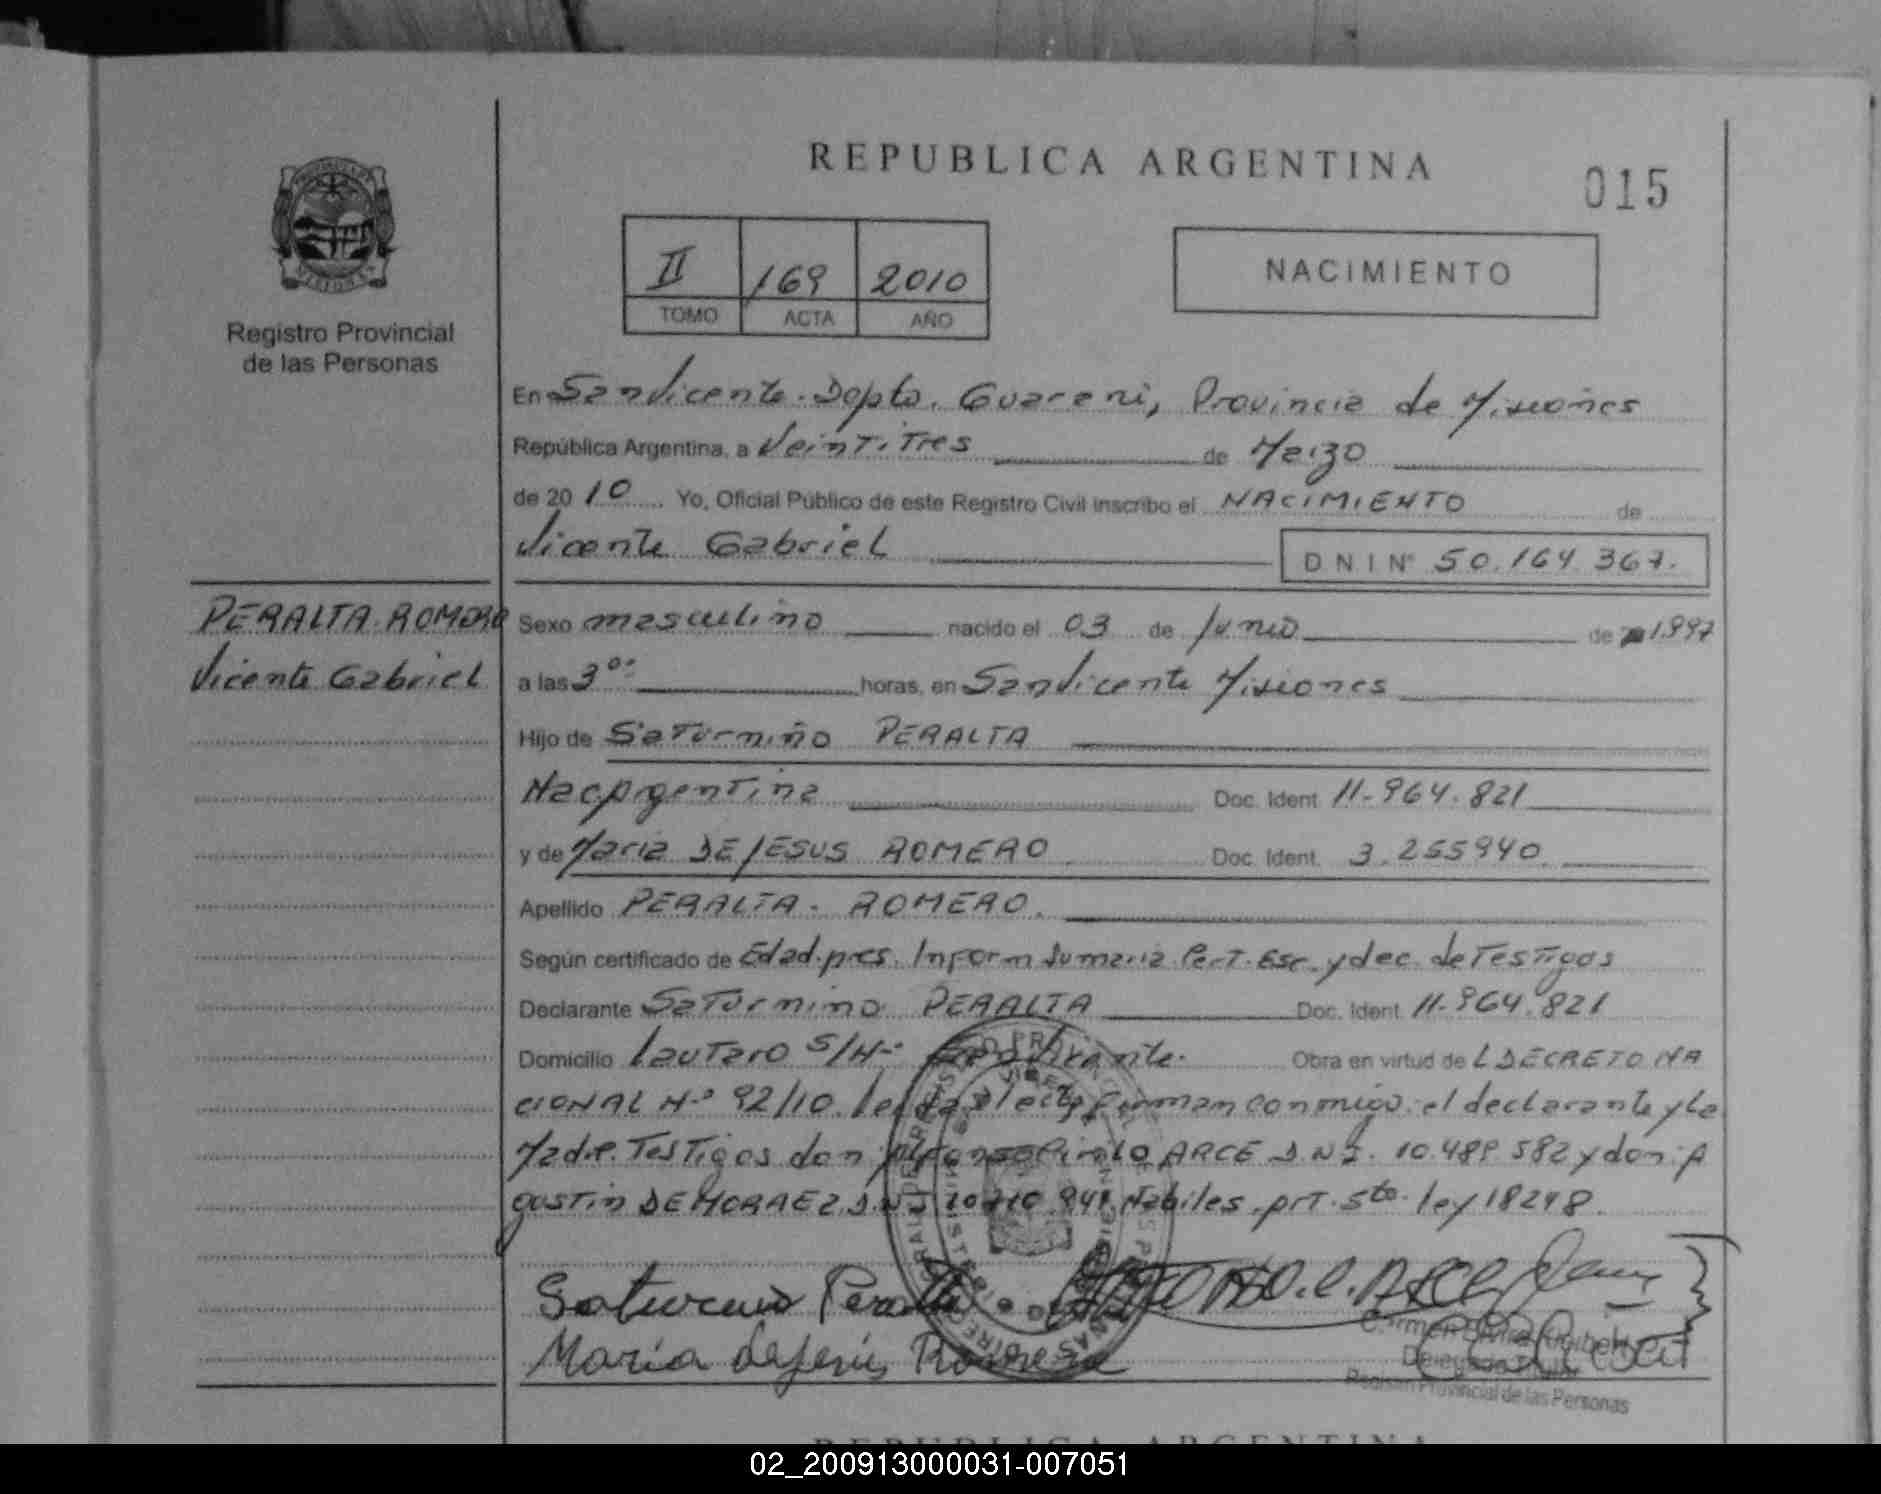 REPUBLICA ARGENTINA
015
II 169 2010
TOMO ACTA AÑO
NACIMIENTO
Registro Provincial
de las Personas
En San Vicente. Dpto. Guarani, Provincia de Misiones
República Argentina, a Veintitres de Marzo
de 2010 Yo, Oficial Público de este Registro Civil inscribo el NACIMIENTO de
Vicente Gabriel
D N I Nº 50.164.367.
PERALTA. ROMERO
Vicente Gabriel
Sexo masculino nacido el 03 de Junio de 1997
a las 3º: horas, en San Vicente Misiones
Hijo de Saturnino PERALTA
Nac. Argentina Doc. Ident. 11-964.821
y de Maria DE JESUS ROMERO Doc. Ident. 3.255940
Apellido PERALTA - ROMERO.
Según certificado de Edad. pres. Inform Sumaria Pert. Esc. y dec. de Testigos
Declarante Saturnino PERALTA Doc. Ident. 11-964.821
Domicilio Lautaro S/Nº San Vicente. Obra en virtud de L DECRETO NA
CIONAL Nº 92/10. Leida el acta firman conmigo. el declarante y la
Madre. Testigos don ARCE D.N.I. 10.489.582 y don A
gustin DE MORAEZ. D.N.I. Habiles. prt. Sto. ley 18248.
Saturnino Peralta
Maria de Jesús Romero
Delegada Titular
Registro Provincial de las Personas
REPUBLICA ARGENTINA
02_200913000031-007051